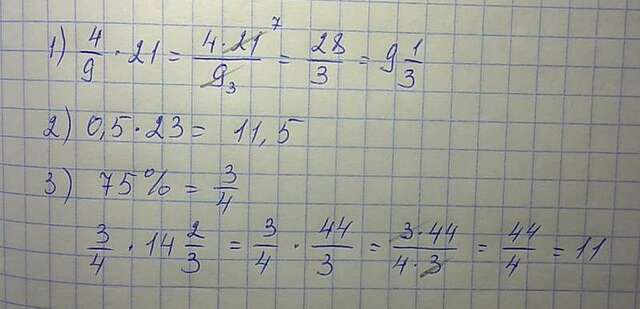 1) 4/9 · 21 = 4·21/9 7 3 = 28/3 = 9 1/3
2) 0,5·23 = 11,5
3) 75% = 3/4
3/4 · 14 2/3 = 3/4 · 44/3 = 3·44/4·3 = 44/4 = 11